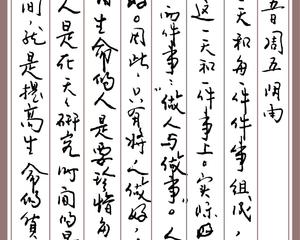 五日周五阴雨
一天和每一件件事组成，
这一天和一件事上。实际
两件事“做人与做事”。人
好。因此，只有将人做好，
生命的人是要珍惜每
人是花天天研究时间的
间，就是提高生命的质